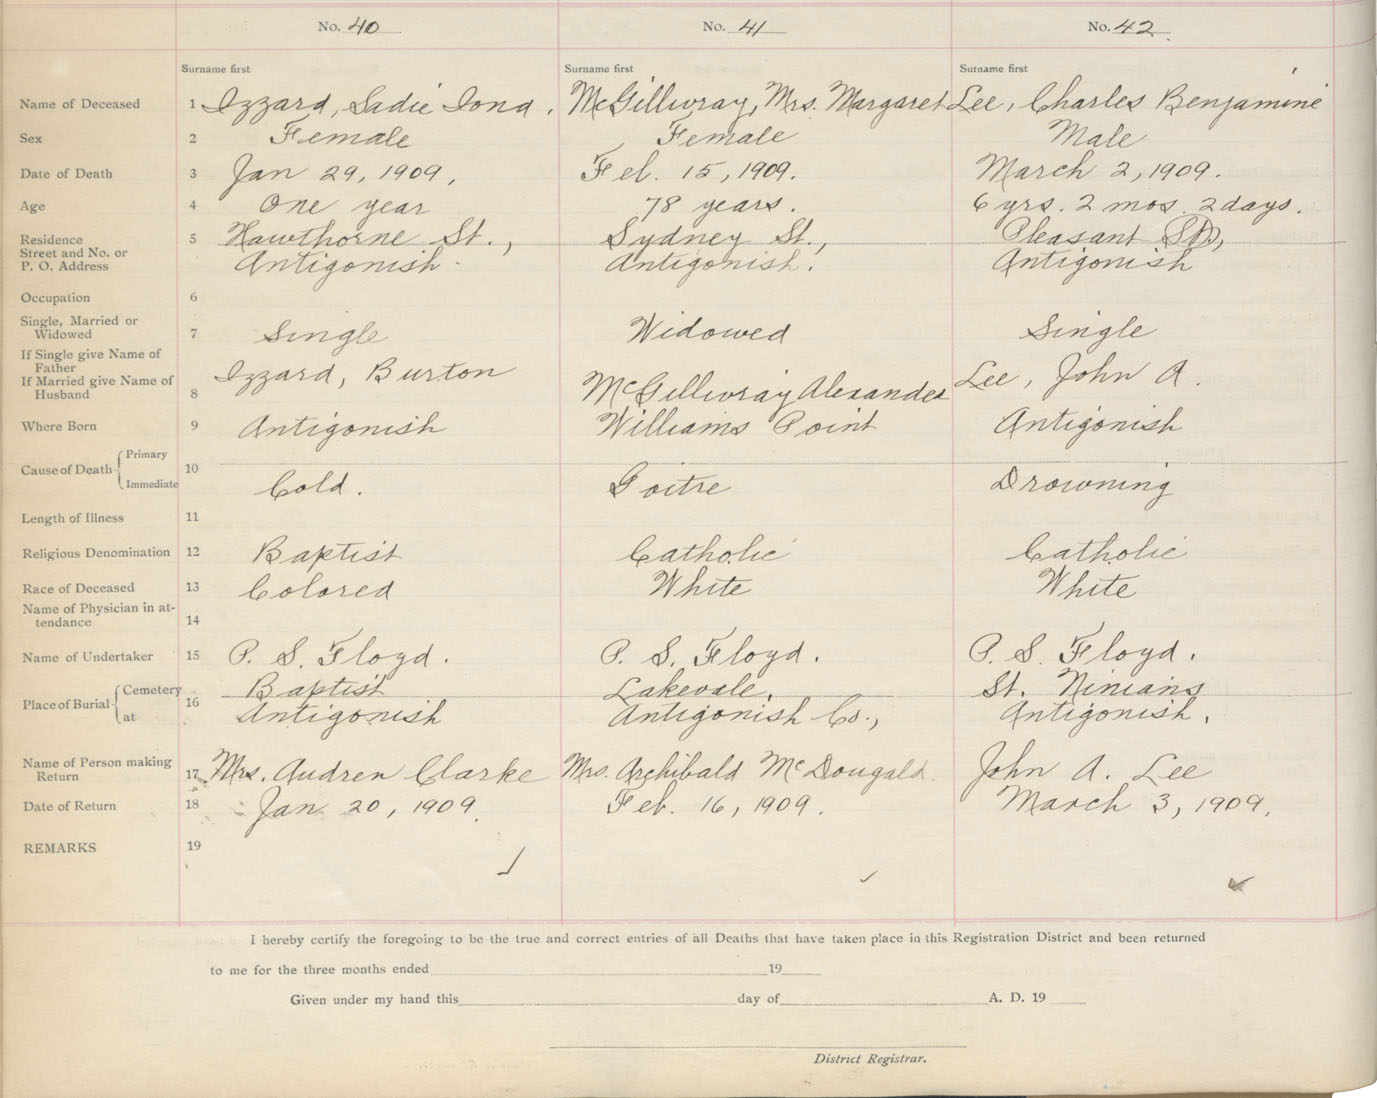 No. 40 No. 41 No. 42
Surname first Surname first Surname first
Name of Deceased 1 Izzard, Sadie Iona. McGillivray, Mrs. Margaret Lee, Charles Benjamine
Sex 2 Female Female Male
Date of Death 3 Jan 29, 1909, Feb. 15, 1909. March 2, 1909.
Age 4 One year 78 years. 6 yrs. 2 mos. 2 days.
Residence 5 Hawthorne St., Sydney St., Pleasant St.,
Street and No. or
P. O. Address Antigonish. Antigonish. Antigonish
Occupation 6
Single, Married or
Widowed 7 Single Widowed Single
If Single give Name of
Father
If Married give Name of Izzard, Burton Lee, John A.
Husband 8 McGillivray Alexander
Where Born 9 Antigonish Williams Point Antigonish
Primary
Cause of Death 10
Immediate Cold. Goitre Drowning
Length of Illness 11
Religious Denomination 12 Baptist Catholic Catholic
Race of Deceased 13 Colored White White
Name of Physician in at-
tendance 14
Name of Undertaker 15 P. S. Floyd. P. S. Floyd. P. S. Floyd.
Cemetery Baptist Lakevale, St. Ninians
Place of Burial 16
at Antigonish Antigonish Co., Antigonish.
Name of Person making
Return 17 Mrs. Audren Clarke Mrs. Archibald McDougald. John A. Lee
Date of Return 18 Jan 20, 1909. Feb. 16, 1909. March 3, 1909.
REMARKS 19
I hereby certify the foregoing to be the true and correct entries of all Deaths that have taken place in this Registration District and been returned
to me for the three months ended 19
Given under my hand this day of A. D. 19
District Registrar.